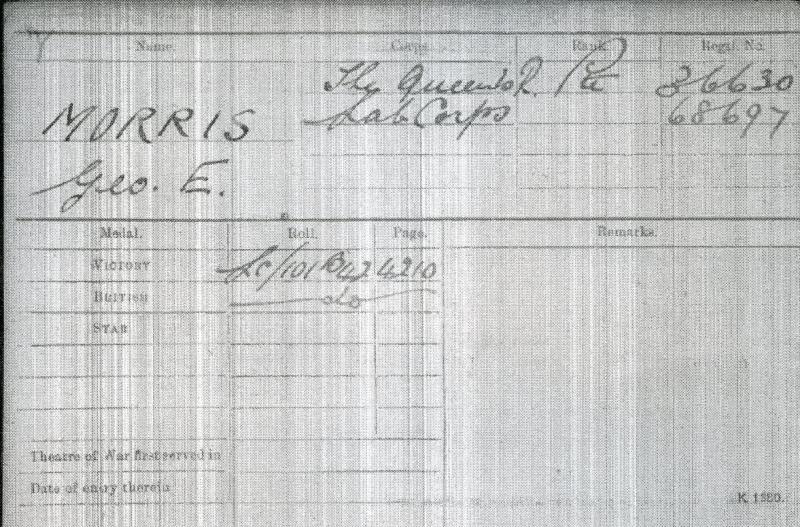 Name. Corps. Rank. Regtl. No.
The Queen's R. Pte 36630
MORRIS Lab Corps 68697
Geo. E.
Medal. Roll. Page. Remarks.
VICTORY LC/101 B42 4210
BRITISH do
STAR
Theatre of War first served in
Date of entry therein
K. 1380.